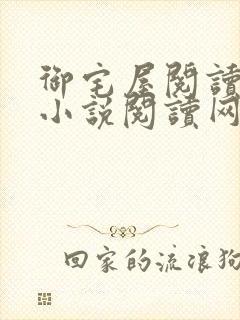 御宅屋閱讀
小說閱讀网
回家的流浪狗